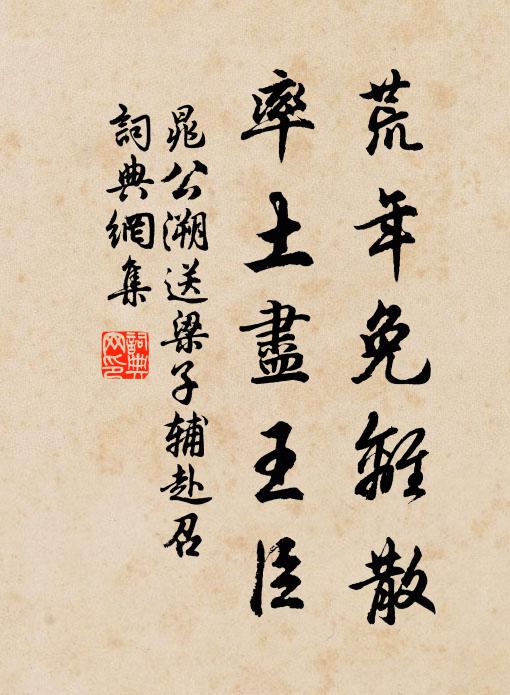 荒年免離散
率土盡王臣
晁公溯送梁子辅赴召
詞典網集
詞典網印